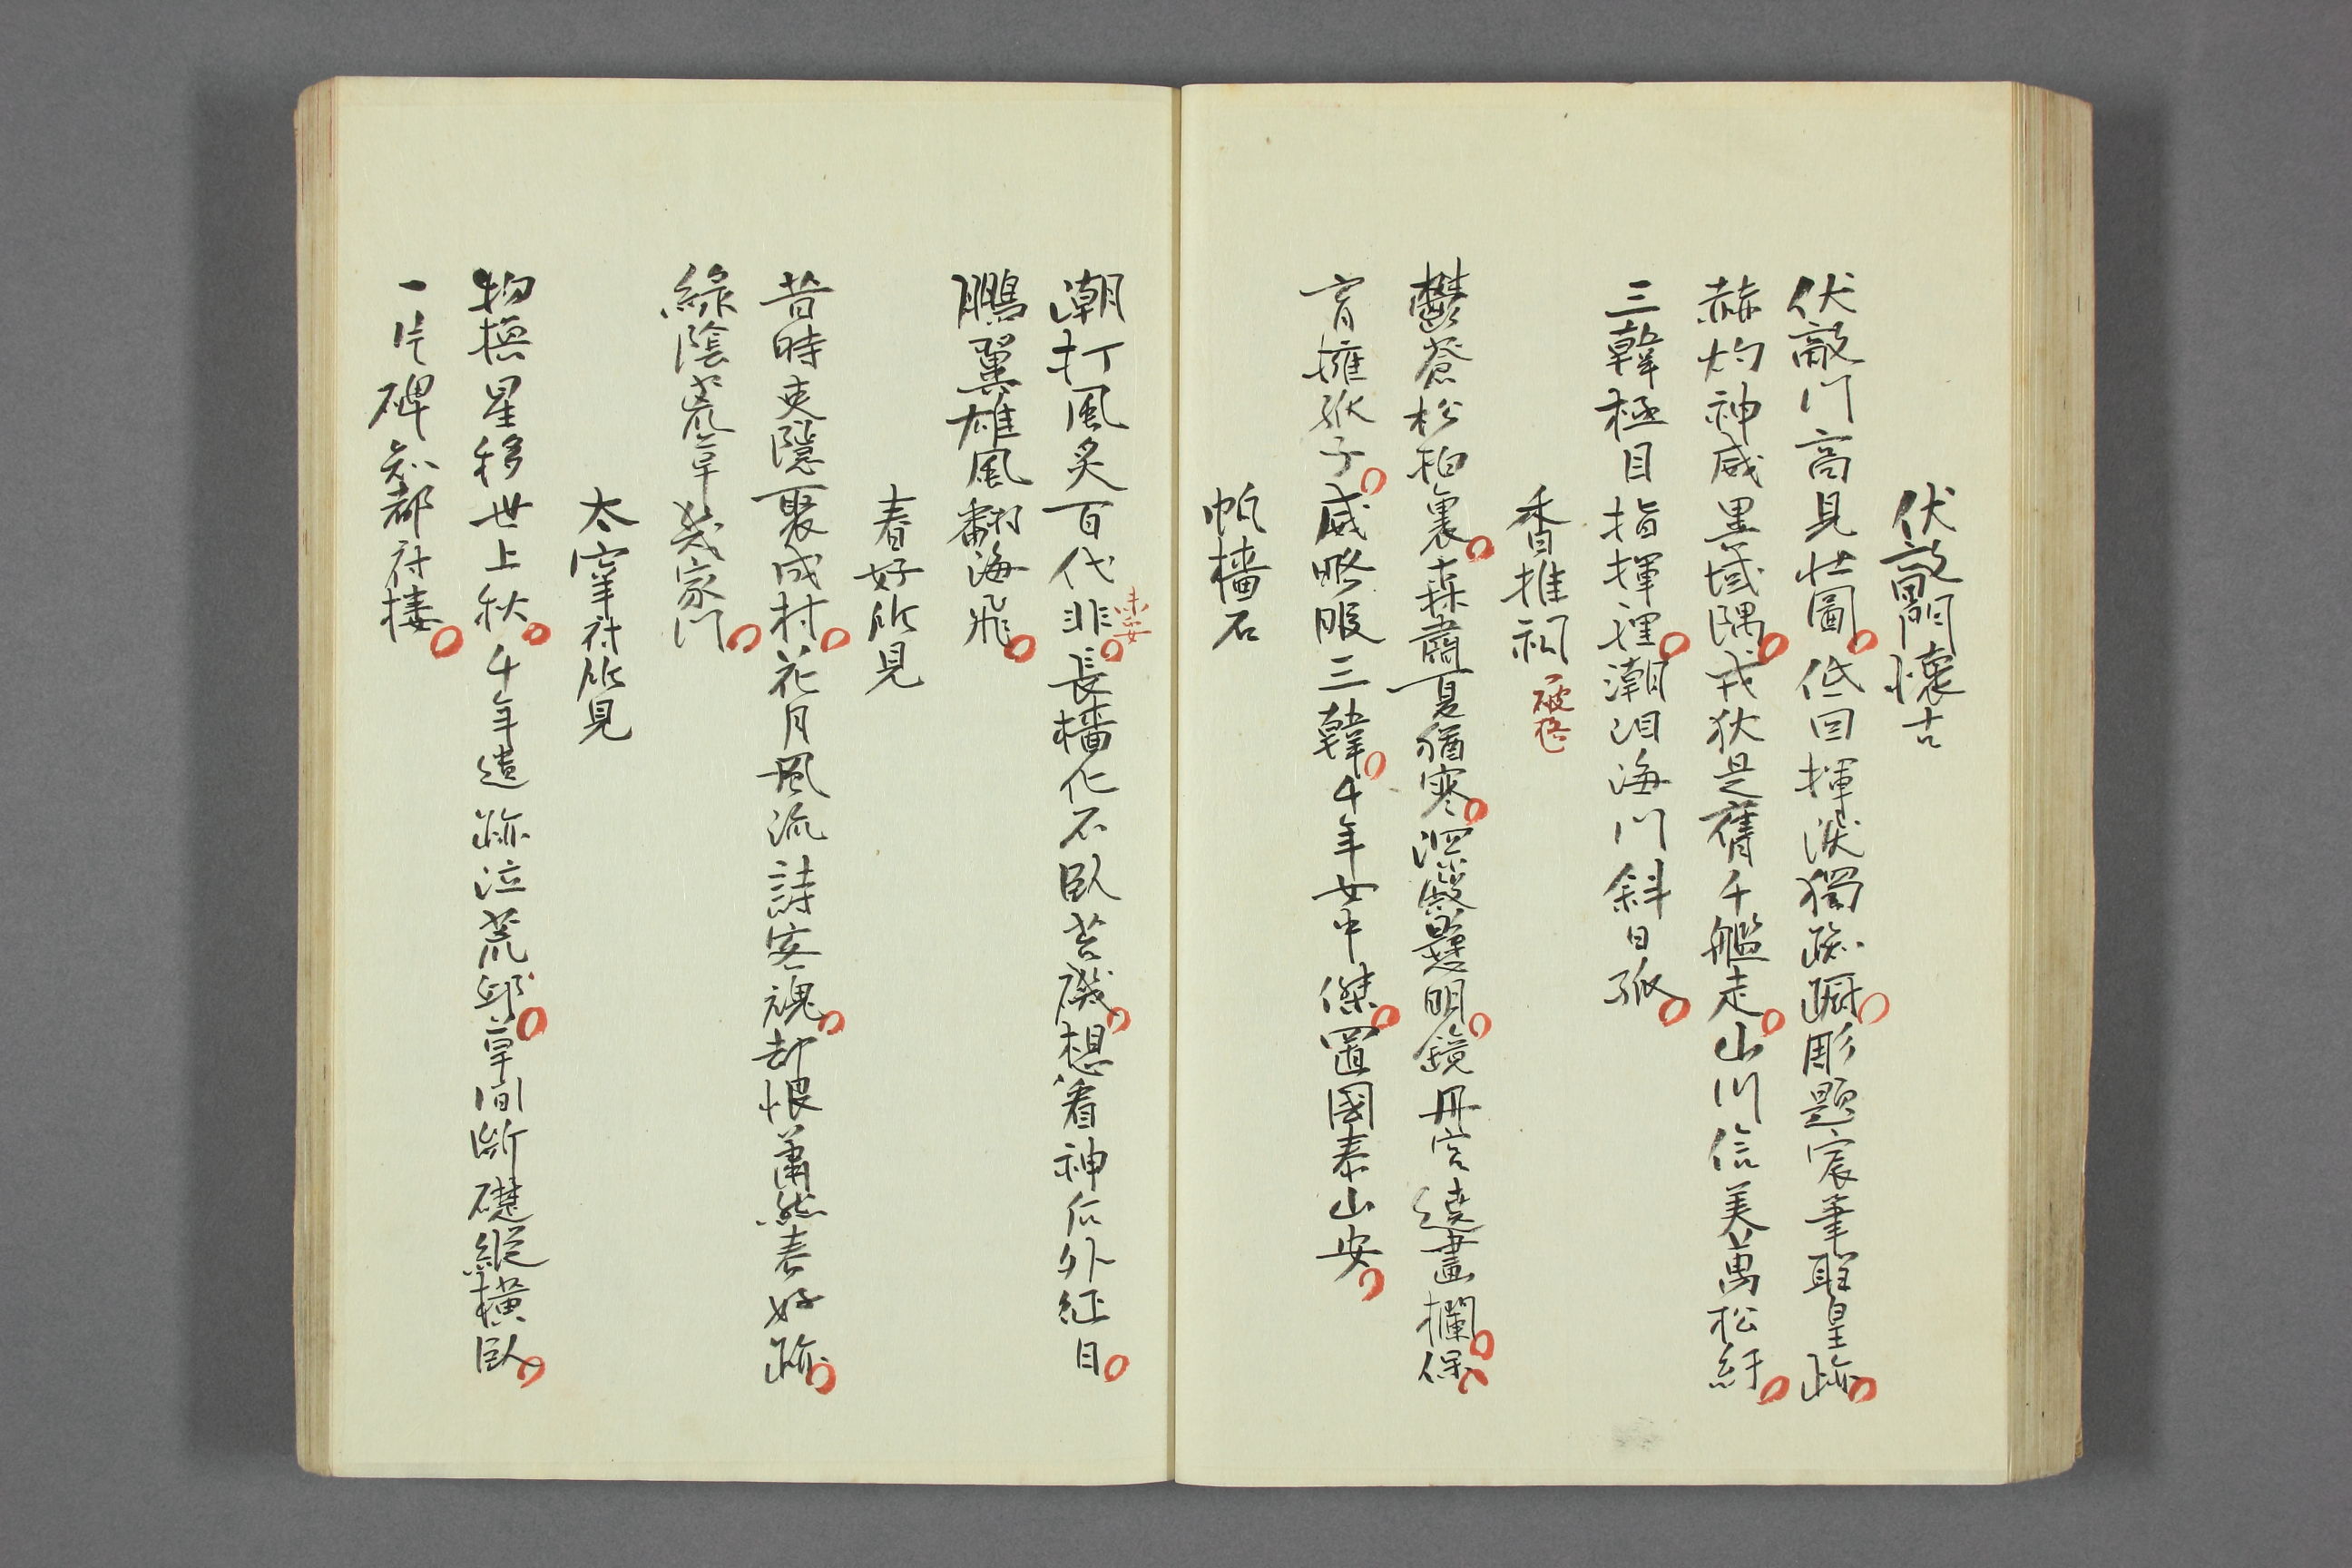 伏敵門懷古
伏敵門高見壮圖低回揮淚獨踟蹰彫題宸筆聖皇跡
赫灼神威里域隅戎狄是膺千艦走山川信美萬松紆
三韓極目指揮裡潮泪海門斜日孤
香推祠
鬱蒼松柏裏森肅夏猶寒深殿懸明鏡丹宮遶畫欄保
育擁孤子威略服三韓千年女中傑置國泰山安
帆檣石
潮打風炙百代非長檣化石臥苔磯想看神后外征日
未妥
鵬翼雄風翻海飛
春好所見
昔時吏隱聚成村花月風流詩客魂却恨蕭然春好跡
綠陰荒草幾家門
太宰府所見
物換星移世上秋千年遺跡泣荒邱草間斷礎縱橫臥
一片碑知都府楼